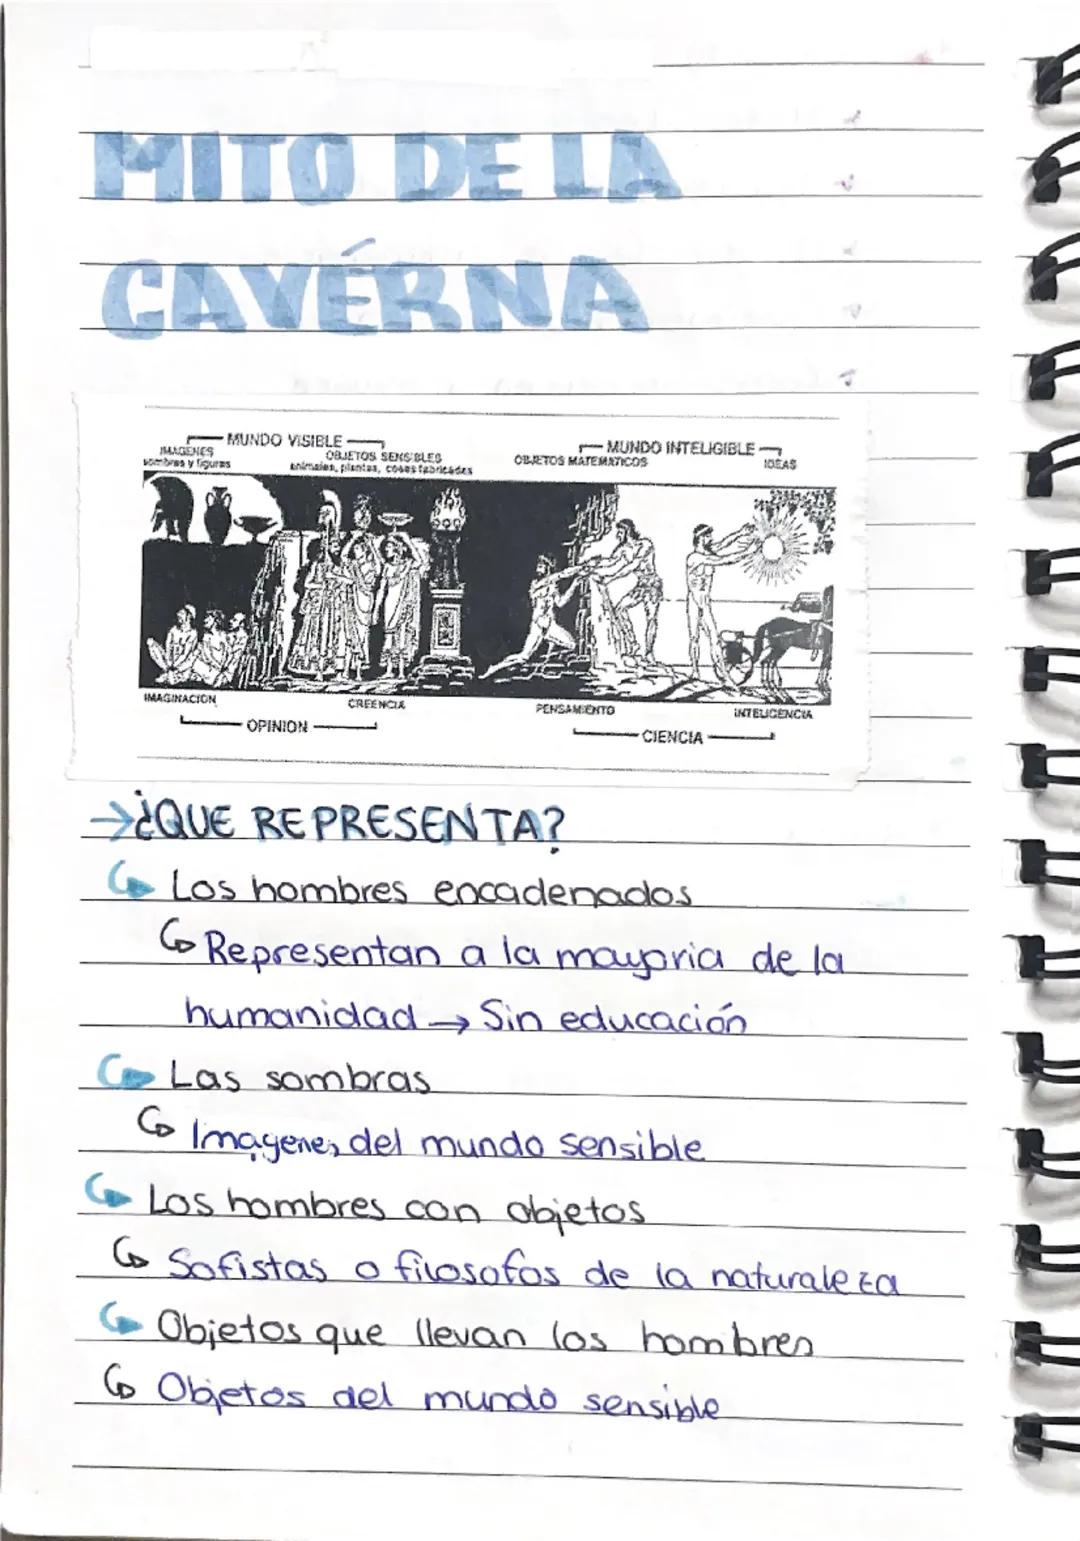 MITO DE LA
CAVÉRNA
MUNDO VISIBLE
IMAGENES
sombras y figuras
OBJETOS SENSIBLES
animales, plantas, cosas fabricadas
MUNDO INTELIGIBLE
OBJETOS MATEMATICOS
IDEAS
IMAGINACION
CREENCIA
OPINION
PENSAMIENTO
INTELIGENCIA
CIENCIA
→¿QUE REPRESENTA?
Los hombres encadenados
Representan a la mayoria de la
humanidad → Sin educación
Las sombras
Imagenes del mundo sensible
Los hombres con objetos
Sofistas o filosofos de la naturaleza
Objetos que llevan los hombres
Objetos del mundo sensible